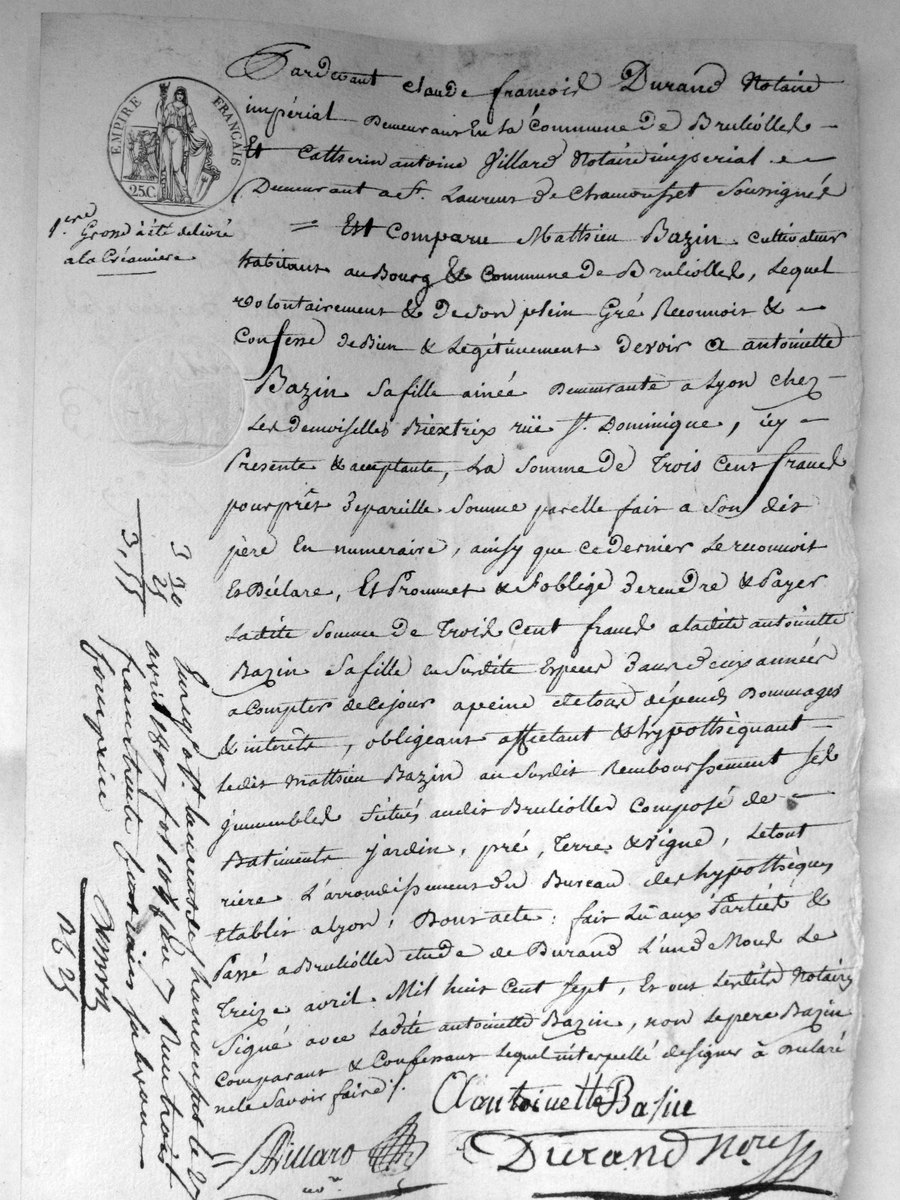 EMPIRE FRANÇAIS
25C.
1.ere Grosse à été delivré
a la Créanciere
Pardevant Claude francois Durand Notaire
impérial Demeurant En la Commune de Brulioles
Et Catherin antoine Villard Notaire imperial
Demeurant a St. Laurent de Chamousset Soussignés
Est Comparu Mathieu Bazin Cultivateur
habitant au Bourg & Commune de Brulioles, lequel
volontairement & de son plein Gré Reconnoit &
Confesse de Bien & Légitimement devoir a antoinette
Bazin Sa fille ainée Demeurante a Lyon chez
Les demoiselles Biextrix rüe St. Dominique, icy
Presente & acceptante, La Somme de Trois Cent francs
pour prêt de pareille Somme par elle fait a Son dit
père En numeraire, ainsy que ce dernier le reconnoit
Et Déclare, Et Prommet & S'oblige de rendre & Payer
Ladite Somme de Trois Cent francs a ladite antoinette
Bazin Sa fille en Susdite Espece dans deux années
a Compter de ce jour a peine de tous dépends Dommages
& intérêts, obligeant affectant & hypothéquant
ledit Mathieu Bazin au Susdit Remboursement Ses
jmmeubles Situés audit Brulioles Composé de
Batiments jardin, pré, Terre & Vigne, Le tout
rière L'arrondissement du Bureau des hypothéques
Etablit a Lyon; Dont acte: fait Lû aux Parties &
Passé a Brulioles étude de Durand L'un de Nous Le
Treize avril Mil huit Cent Sept, Et ont Lesdits Notaires
Signé avec Ladite antoinette Bazin, non Le pere Bazin
Comparant & Confessant lequel interpellé de signer à Déclaré
ne le Savoir faire /.
C antoinette Basin
Villard
Durand Nore
a St laurent de chamousset le 27
avril 1807 fol
francs trente
3 30
25
3,55